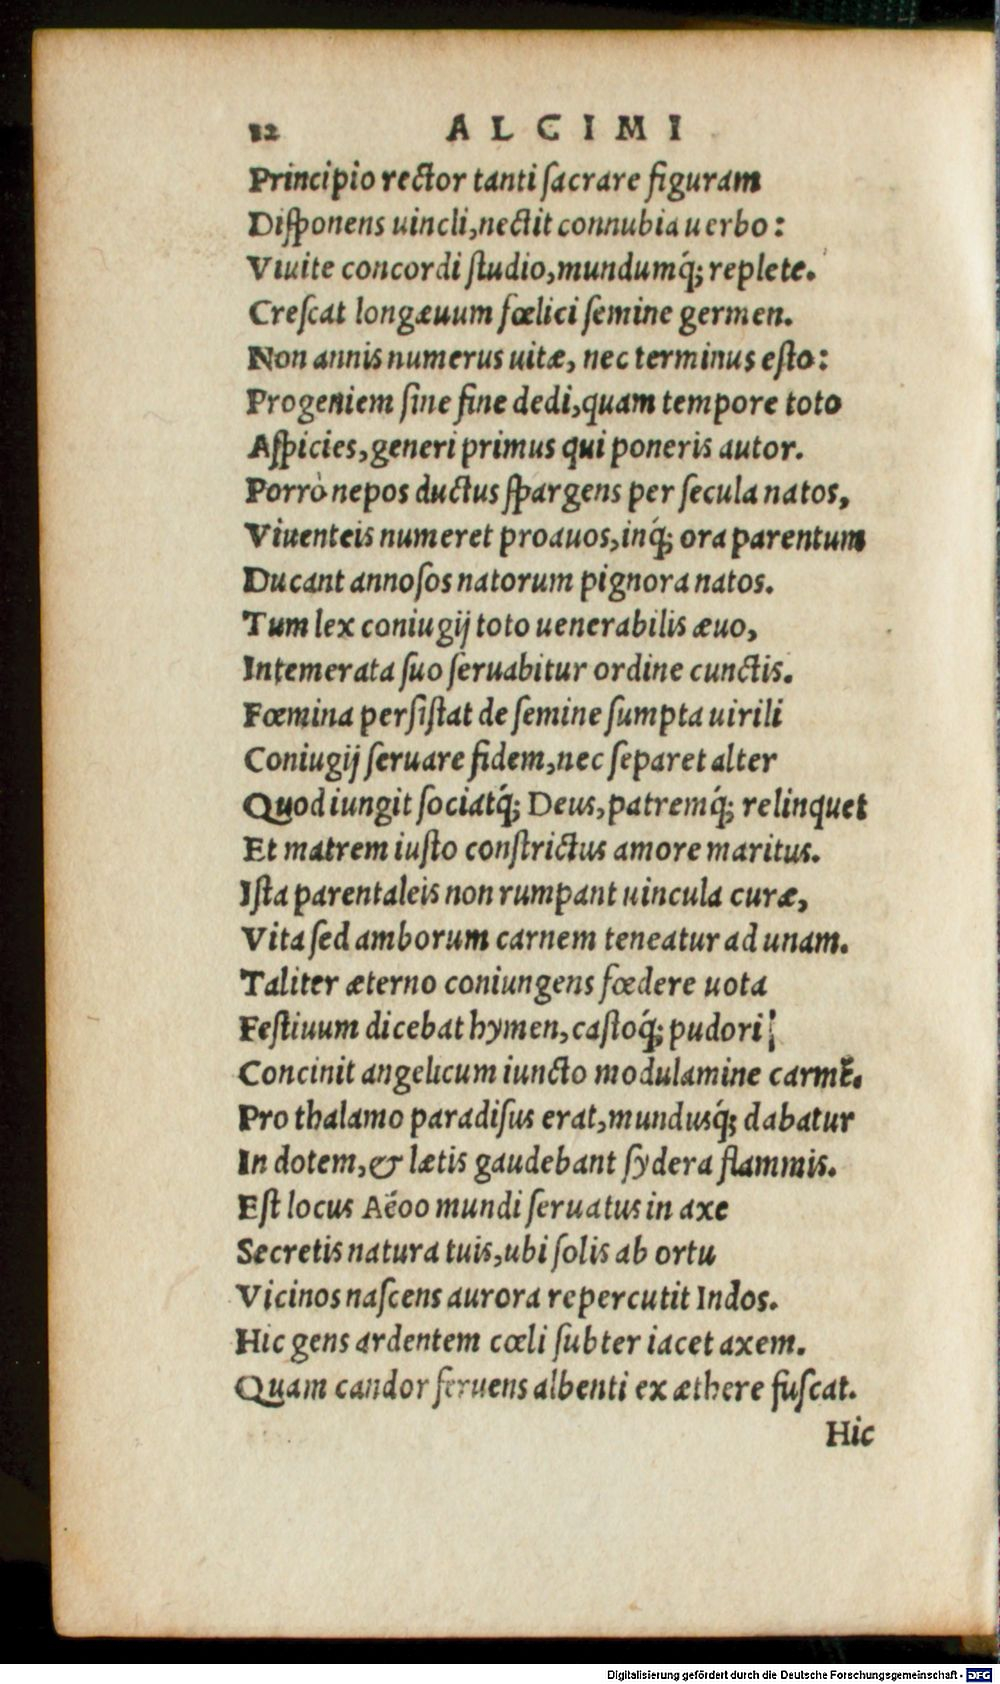 12 ALCIMI
Principio rector tanti ſacrare figuram
Diſponens uincli, nectit connubia uerbo:
Viuite concordi ſtudio, mundumq́; replete.
Creſcat longæuum fœlici ſemine germen.
Non annis numerus uitæ, nec terminus eſto:
Progeniem ſine fine dedi, quam tempore toto
Aſpicies, generi primus qui poneris autor.
Porrò nepos ductus ſpargens per ſecula natos,
Viuenteis numeret proauos, inq́; ora parentum
Ducant annoſos natorum pignora natos.
Tum lex coniugij toto uenerabilis æuo,
Intemerata ſuo ſeruabitur ordine cunctis.
Fœmina perſiſtat de ſemine ſumpta uirili
Coniugij ſeruare fidem, nec ſeparet alter
Quod iungit ſociatq́; Deus, patremq́; relinquet
Et matrem iuſto conſtrictus amore maritus.
Iſta parentaleis non rumpant uincula curæ,
Vita ſed amborum carnem teneatur ad unam.
Taliter æterno coniungens fœdere uota
Feſtiuum dicebat hymen, caſtoq́; pudori
Concinit angelicum iuncto modulamine carmē.
Pro thalamo paradiſus erat, mundusq́; dabatur
In dotem, & lætis gaudebant ſydera flammis.
Eſt locus Aëoo mundi ſeruatus in axe
Secretis natura tuis, ubi ſolis ab ortu
Vicinos naſcens aurora repercutit Indos.
Hic gens ardentem cœli ſubter iacet axem.
Quam candor feruens albenti ex æthere fuſcat.
Hic
Digitalisierung gefördert durch die Deutsche Forschungsgemeinschaft - DFG